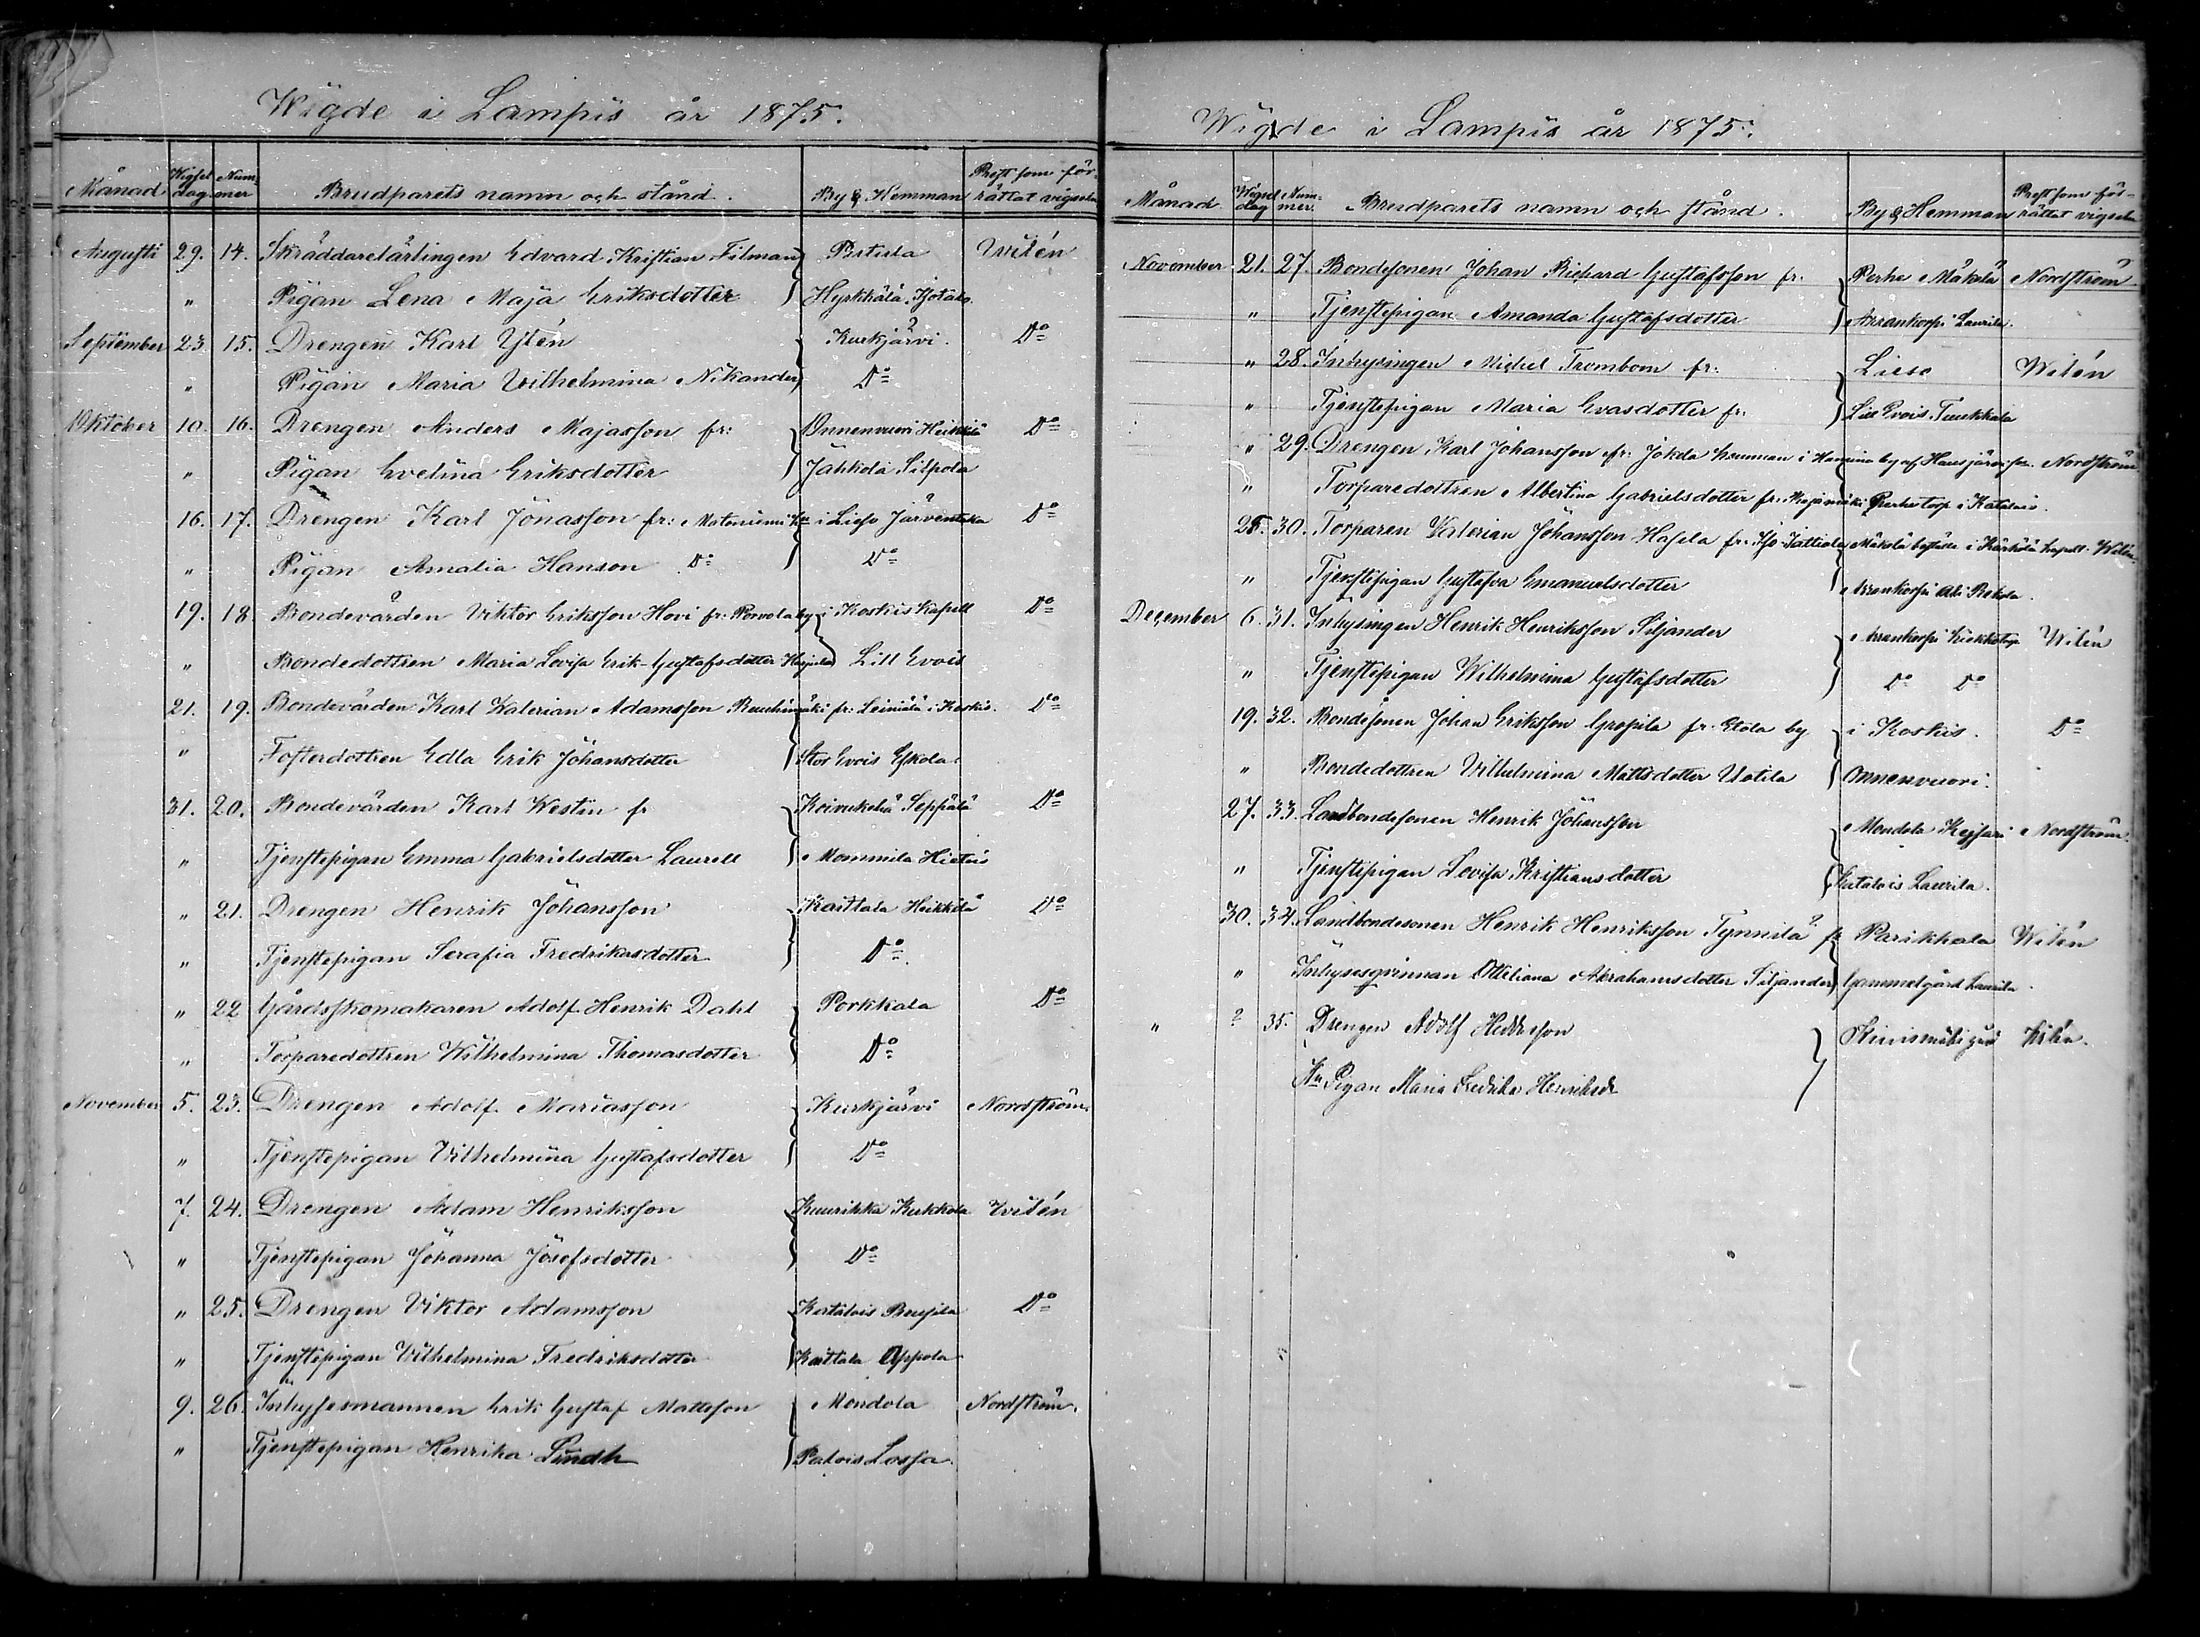 Wigde i Lampis år 1875.
Månad Wigsel dag Num mer Brudparets namn och stånd. By & Hemman Prest som för rättat vigseln
Augusti 29. 14. Skräddarelärlingen Edvard Kristian Filman Pitula Wilén
" Pigan Lena Maja Eriksdotter Hyrkkälä
September 23. 15. Drengen Karl Ylén Kurkjärvi. Do
" Pigan Maria Wilhelmina Nikander Do
Oktober 10. 16. Drengen Anders Majasson fr: Onnenvuori Heikkilä Do
" Pigan Evelina Eriksdotter Jahkola Silpola
16. 17. Drengen Karl Jonasson fr: i Lieso Do
" Pigan Amalia Hanson Do Do
19. 18. Bondevärden Viktor Eriksson Hovi fr: Porvola by i Koskis Kapell Do
" Bondedottren Maria Lovisa Erik-Gustafsdotter Lill Evois
21. 19. Bondevärden Karl Walerian Adamsson fr: i Koskis. Do
" Fosterdottren Edla Erik Johansdotter Stor Evois Eskola
31. 20. Bondevärden Karl Westin fr Koivukelä Seppälä Do
" Tjenstepigan Emma Gabrielsdotter Laurell Mommila Hietois
" 21. Drengen Henrik Johansson Kaittala Heikkilä Do
" Tjenstepigan Serafia Fredriksdotter Do.
" 22 Gårdsskomakaren Adolf Henrik Dahl Porkkala Do
" Torparedottren Wilhelmina Thomasdotter Do
November 5. 23. Drengen Adolf Mariasson Kurkjärvi Nordström.
" Tjenstepigan Vilhelmina Gustafsdotter Do
7. 24. Drengen Adam Henriksson Kuurikka Kukkola Wilén
" Tjenstepigan Johanna Josefsdotter Do
" 25. Drengen Viktor Adamsson Katalois Do
" Tjenstepigan Wilhelmina Fredriksdotter Kaittala Oppola
9. 26. Inhyssesmannen Erik Gustaf Mattsson Mondola Nordström.
" Tjenstepigan Henrika Lindh Patois Lossa
Wigde i Lampis år 1875.
Månad Wigsel dag Num- mer. Brudparets namn och stånd. By & Hemman Prest som för- rättat vigseln
November 21. 27. Bondesonen Johan Richard Gustafsson fr. Perhe Mäkelä Nordström
" Tjenstepigan Amanda Gustafsdotter Arrankorpi Laurila.
" 28. Inhysingen Michel Trombom fr. Lieso Wilén
" Tjenstepigan Maria Evasdotter fr. Evois Tuukkala
" 29. Drengen Karl Johansson fr: Jokela hemman i by af Hausjärvi sn. Nordström
" Torparedottren Albertina Gabrielsdotter fr. torp i Katalois.
25. 30. Torparen Walerian Johansson Hasela fr. Mäkelä i Kärkölä kapell. Wilén
" Tjenstepigan Gustafva Emanuelsdotter Arrankorpi Ali
December 6. 31. Inhysingen Henrik Henriksson Siljander Arrankorpi Wilén
" Tjenstepigan Wilhelmina Gustafsdotter Do Do
19. 32. Bondesonen Johan Eriksson fr. Etola by i Koskis. Do
" Bondedottren Vilhelmina Mattsdotter Uotila Onnenvuori.
27. 33. Landbondesonen Henrik Johansson Mondola Keisari Nordström.
" Tjenstepigan Lovisa Kristiansdotter Katalois Laurila.
30. 34. Landbondesonen Henrik Henriksson Tynnilä fr Parikkala Wilén
" Inhysesqvinnan Ottiliana Abrahamsdotter Siljander Gammelgård Laurila.
" ? 35. Drengen Adolf Wilén.
Pigan Maria Fredrika Henriksdr